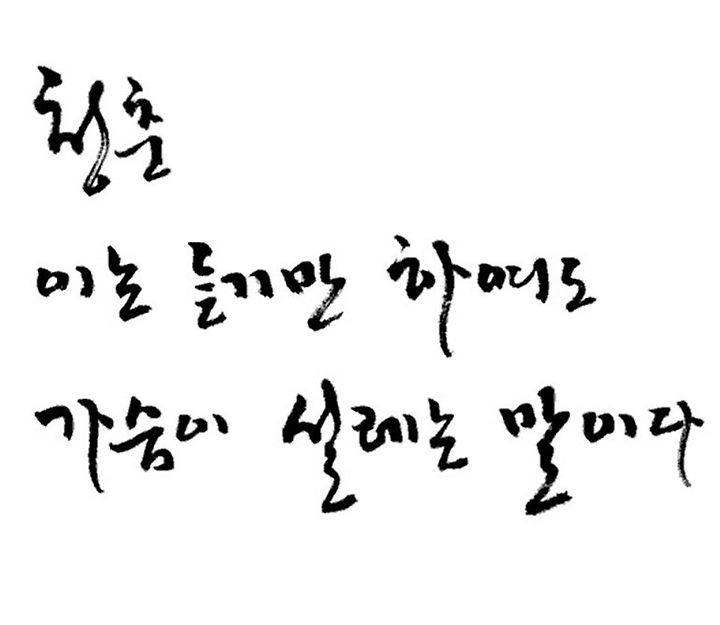 청춘
이는 듣기만 하여도
가슴이 설레는 말이다